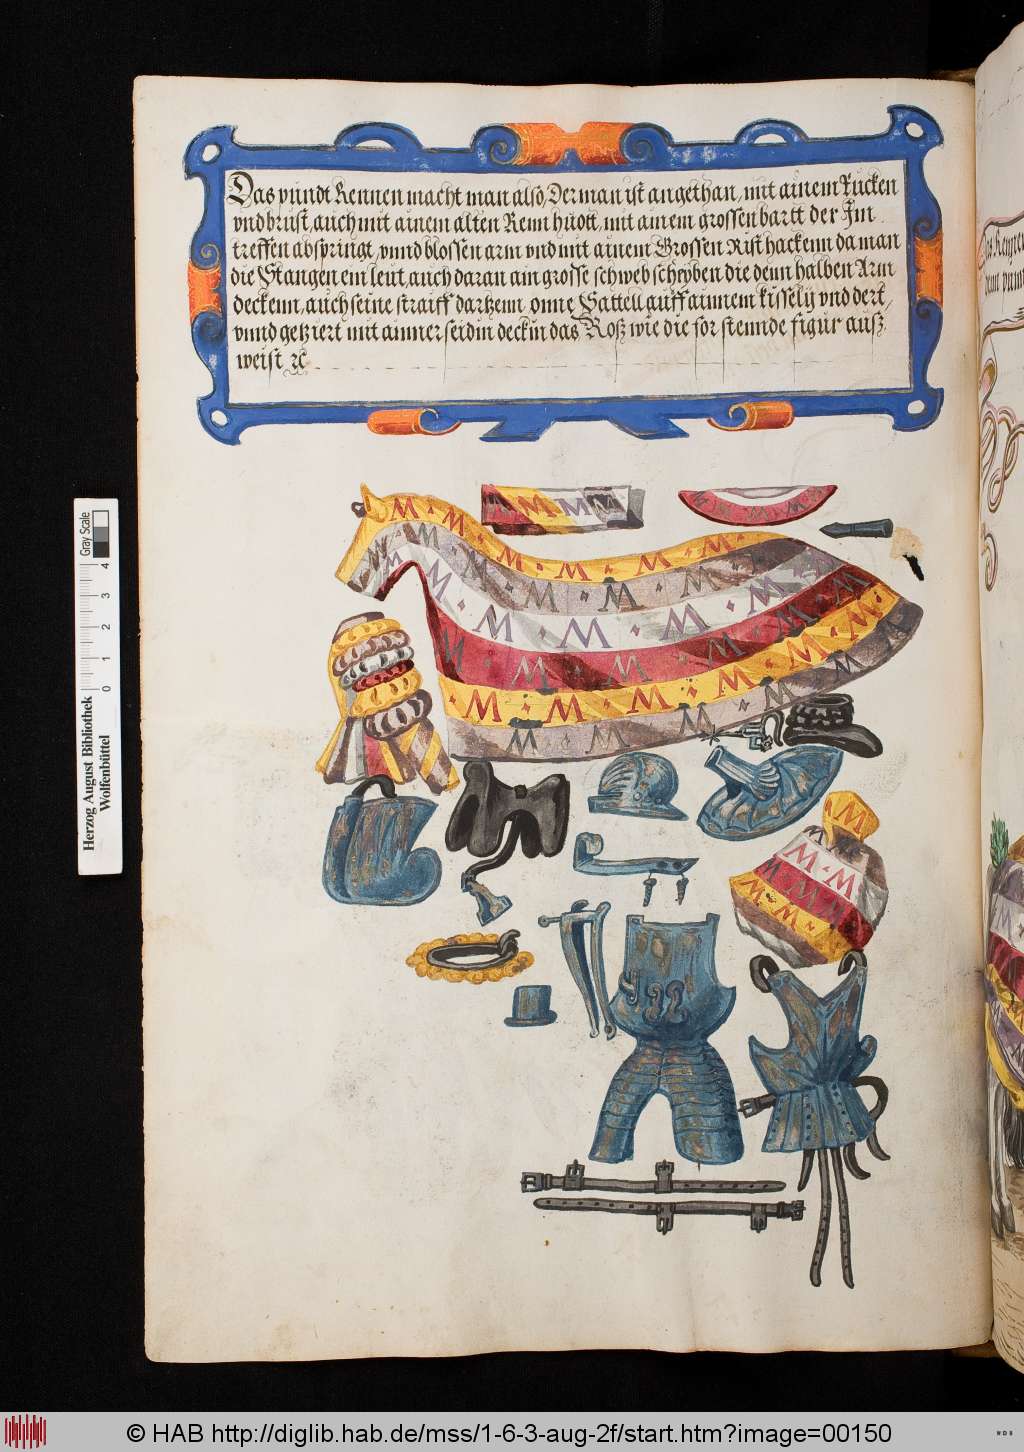 Das pundt Rennen macht man also, Der man ist angethan, mit ainem Rucken
vnd brust, auch mit ainem alten Renn huott, mit ainem grossen bartt der Im
treffen abspringt, vnnd blossen arm vnd mit ainem Grossen Rist hackenn da man
die Stangen ein leut, auch daran ain grosse schweb scheyben die denn halben Arm
deckenn, auch seine straiff dartzenn onne Sattell auff ainnem kissely vnd dert,
vnnd getziert mit ainner seidin deck in das Roß wie die for stennde figur auß
weist ꝛc
M M M M
M M M M
M M M M M M
M M M M M
M M M M M
M M M M M M
M M M M M M
M M M
M
M M M
M M M
M M M
Gray Scale
0 1 2 3 4
Herzog August Bibliothek
Wolfenbüttel
© HAB http://diglib.hab.de/mss/1-6-3-aug-2f/start.htm?image=00150
WDB